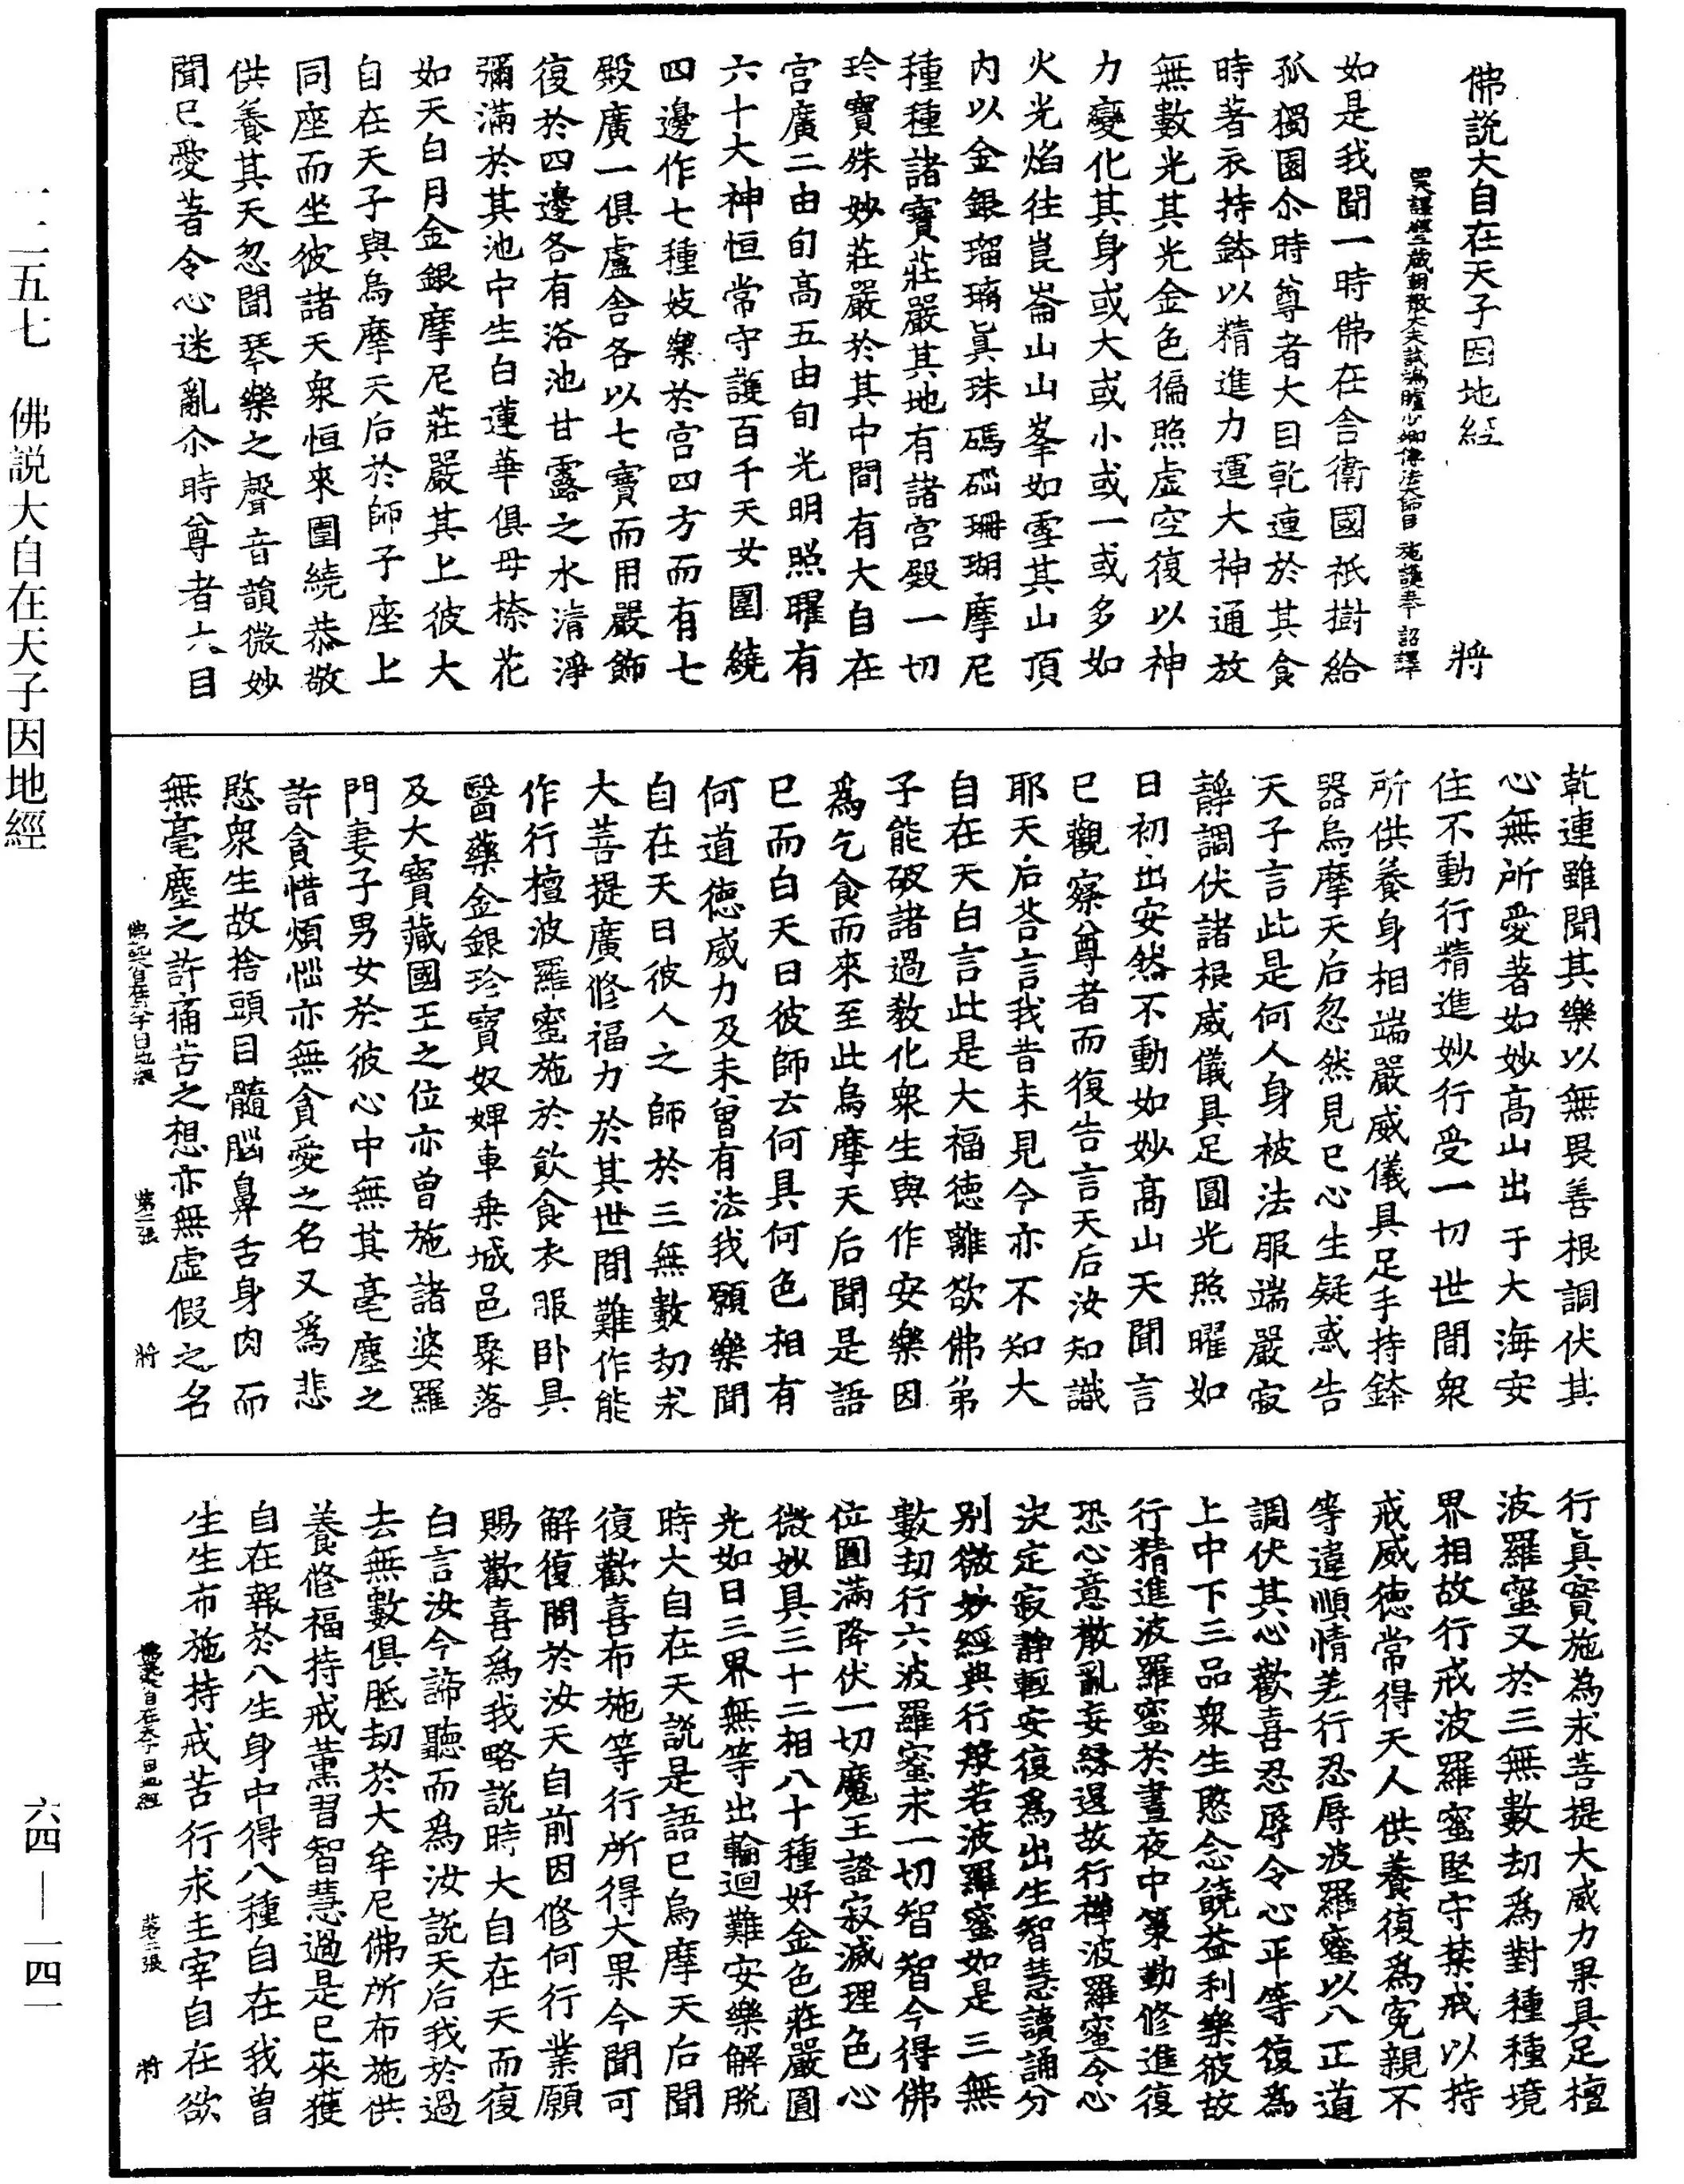 佛説大自在天子因地經　將
西天譯經三藏朝散大夫試鴻臚少卿傳法大師臣施護奉　詔譯
如是我聞一時佛在舍衛國祇樹給
孤獨園尒時尊者大目乾連於其食
時著衣持鉢以精進力運大神通放
無數光其光金色徧照虛空復以神
力變化其身或大或小或一或多如
火光焰往崑崙山山峯如雪其山頂
內以金銀瑠璃眞珠碼碯珊瑚摩尼
種種諸寶莊嚴其地有諸宮殿一切
玲寶殊妙莊嚴於其中間有大自在
宮廣二由旬高五由旬光明照曜有
六十大神恒常守護百千天女圍繞
四邊作七種妓樂於宮四方而有七
殿廣一俱盧舍各以七寶而用嚴飾
復於四邊各有浴池甘露之水清淨
彌滿於其池中生白蓮華俱母㮈花
如天白月金銀摩尼莊嚴其上彼大
自在天子與烏摩天后於師子座上
同座而坐彼諸天衆恒來圍繞恭敬
供養其天忽聞琴樂之聲音韻微妙
聞已愛著令心迷亂尒時尊者大目
乾連雖聞其樂以無畏善根調伏其
心無所愛著如妙高山出于大海安
住不動行精進妙行受一切世間衆
所供養身相端嚴威儀具足手持鉢
器烏摩天后忽然見已心生疑惑告
天子言此是何人身被法服端嚴寂
靜調伏諸根威儀具足圓光照曜如
日初出安然不動如妙高山天聞言
已觀察尊者而復告言天后汝知識
耶天后荅言我昔未見今亦不知大
自在天白言此是大福德離欲佛弟
子能破諸過教化衆生與作安樂因
爲乞食而來至此烏摩天后聞是語
已而白天曰彼師云何具何色相有
何道德威力及未曾有法我願樂聞
自在天曰彼人之師於三無數劫求
大菩提廣修福力於其世間難作能
作行檀波羅蜜施於飲食衣服卧具
醫藥金銀珍寶奴婢車乗城邑聚落
及大寶藏國王之位亦曾施諸婆羅
門妻子男女於彼心中無其毫塵之
許貪惜煩惱亦無貪愛之名又爲悲
愍衆生故捨頭目髓腦鼻舌身肉而
無毫塵之許痛苦之想亦無虛假之名
佛說大自在天子因地經　第二張　將
行眞實施為求菩提大威力果具足檀
波羅蜜又於三無數劫爲對種種境
界相故行戒波羅蜜堅守禁戒以持
戒威德常得天人供養復爲寃親不
等違順情差行忍辱波羅蜜以八正道
調伏其心歡喜忍辱令心平等復為
上中下三品衆生愍念饒益利樂彼故
行精進波羅蜜於晝夜中策勤修進復
恐心意散亂妄緣過故行禪波羅蜜令心
決定寂靜輕安復爲出生智慧讀誦分
別微妙經典行般若波羅蜜如是三無
數劫行六波羅蜜求一切智智今得佛
位圓滿降伏一切魔王證寂滅理色心
微妙具三十二相八十種好金色莊嚴圓
光如日三界無等出輪迴難安樂解脫
時大自在天說是語已烏摩天后聞
復歡喜布施等行所得大果今聞可
解復問於汝天自前因修何行業願
賜歡喜爲我略說時大自在天而復
白言汝今諦聽而爲汝說天后我於過
去無數俱胝劫於大牟尼佛所布施供
養修福持戒薰習智慧過是已來獲
自在報於八生身中得八種自在我曾
生生布施持戒苦行求主宰自在欲
佛說大自在天子因地經　第三張　將
一二五七　佛説大自在天子因地經
六四—一四一